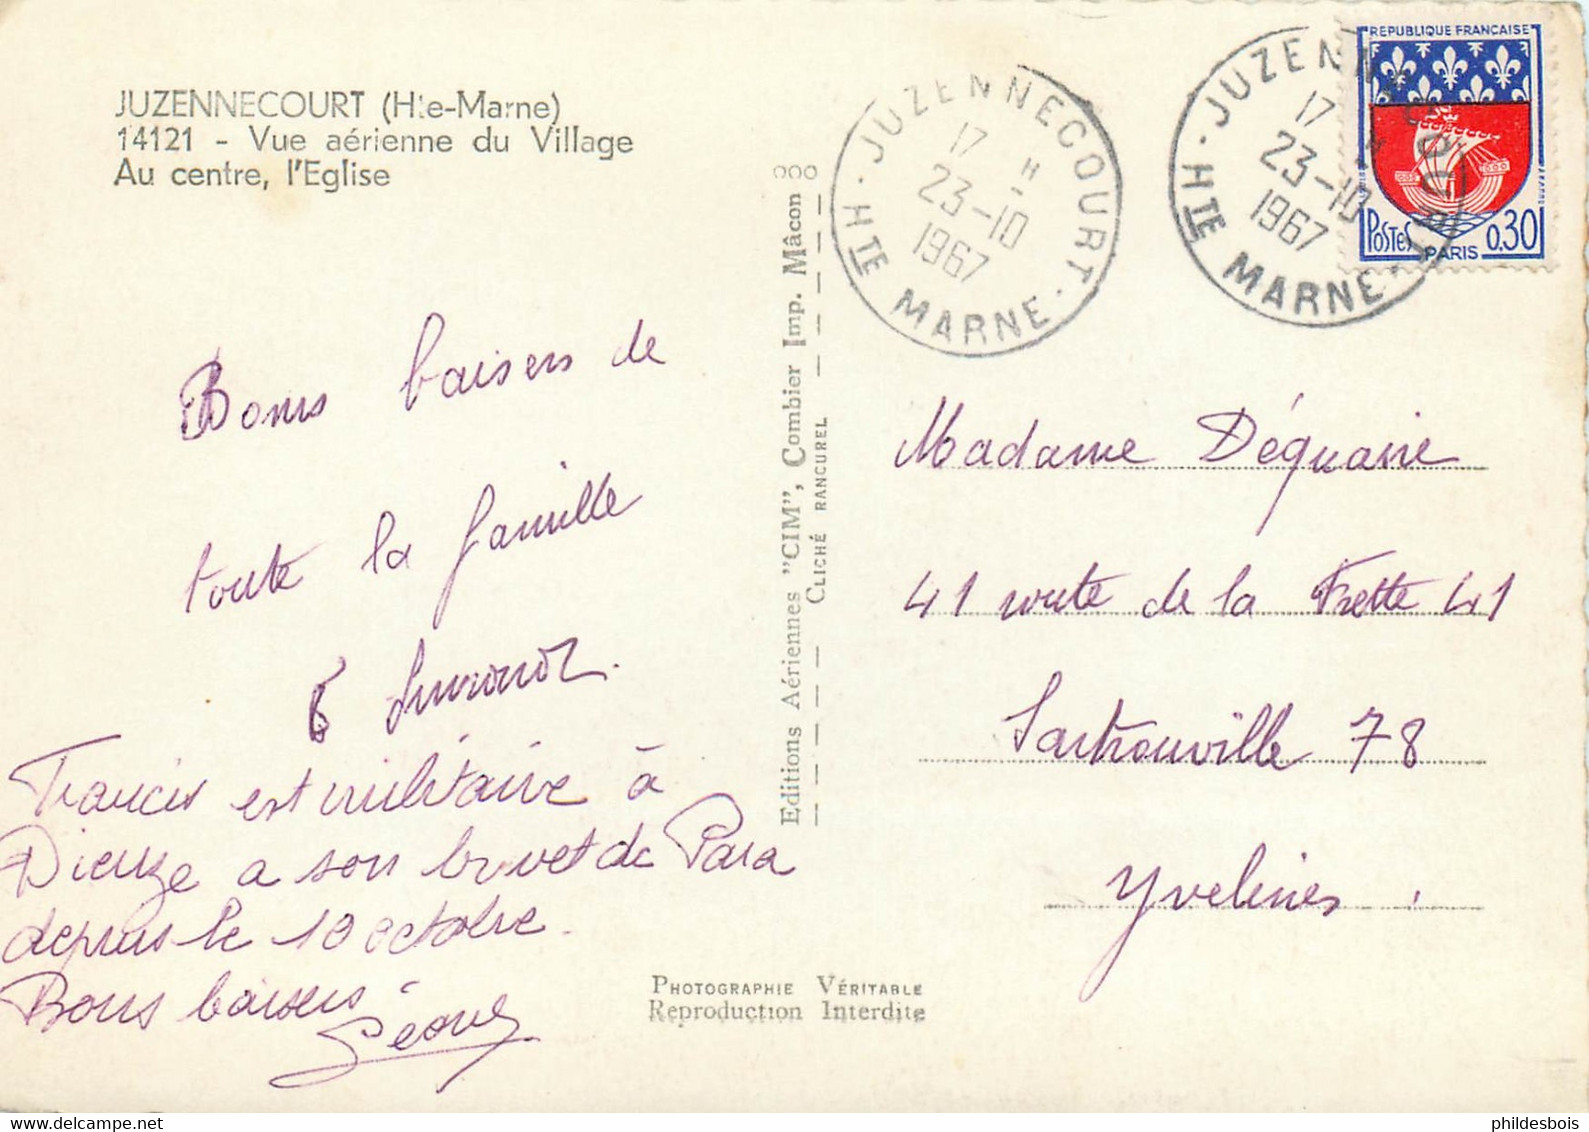 JUZENNECOURT (Hte-Marne)
14121 - Vue aérienne du Village
Au centre, l'Eglise
Bons baisers de
toute la famille
Francis est militaire à
Dieuze a son brevet de Para
depuis le 10 octobre.
Bons baisers
Editions Aériennes "CIM", Combier Imp. Mâcon
CLICHÉ RANCUREL
PHOTOGRAPHIE VÉRITABLE
Reproduction Interdite
JUZENNECOURT
17 H
23-10
1967
HTE MARNE
JUZENNECOURT
17 H
23-10
1967
HTE MARNE
REPUBLIQUE FRANÇAISE
POSTES PARIS 0,30
Madame Déquaire
41 route de la Frette 41
Sartrouville 78
Yvelines.
phildesbois